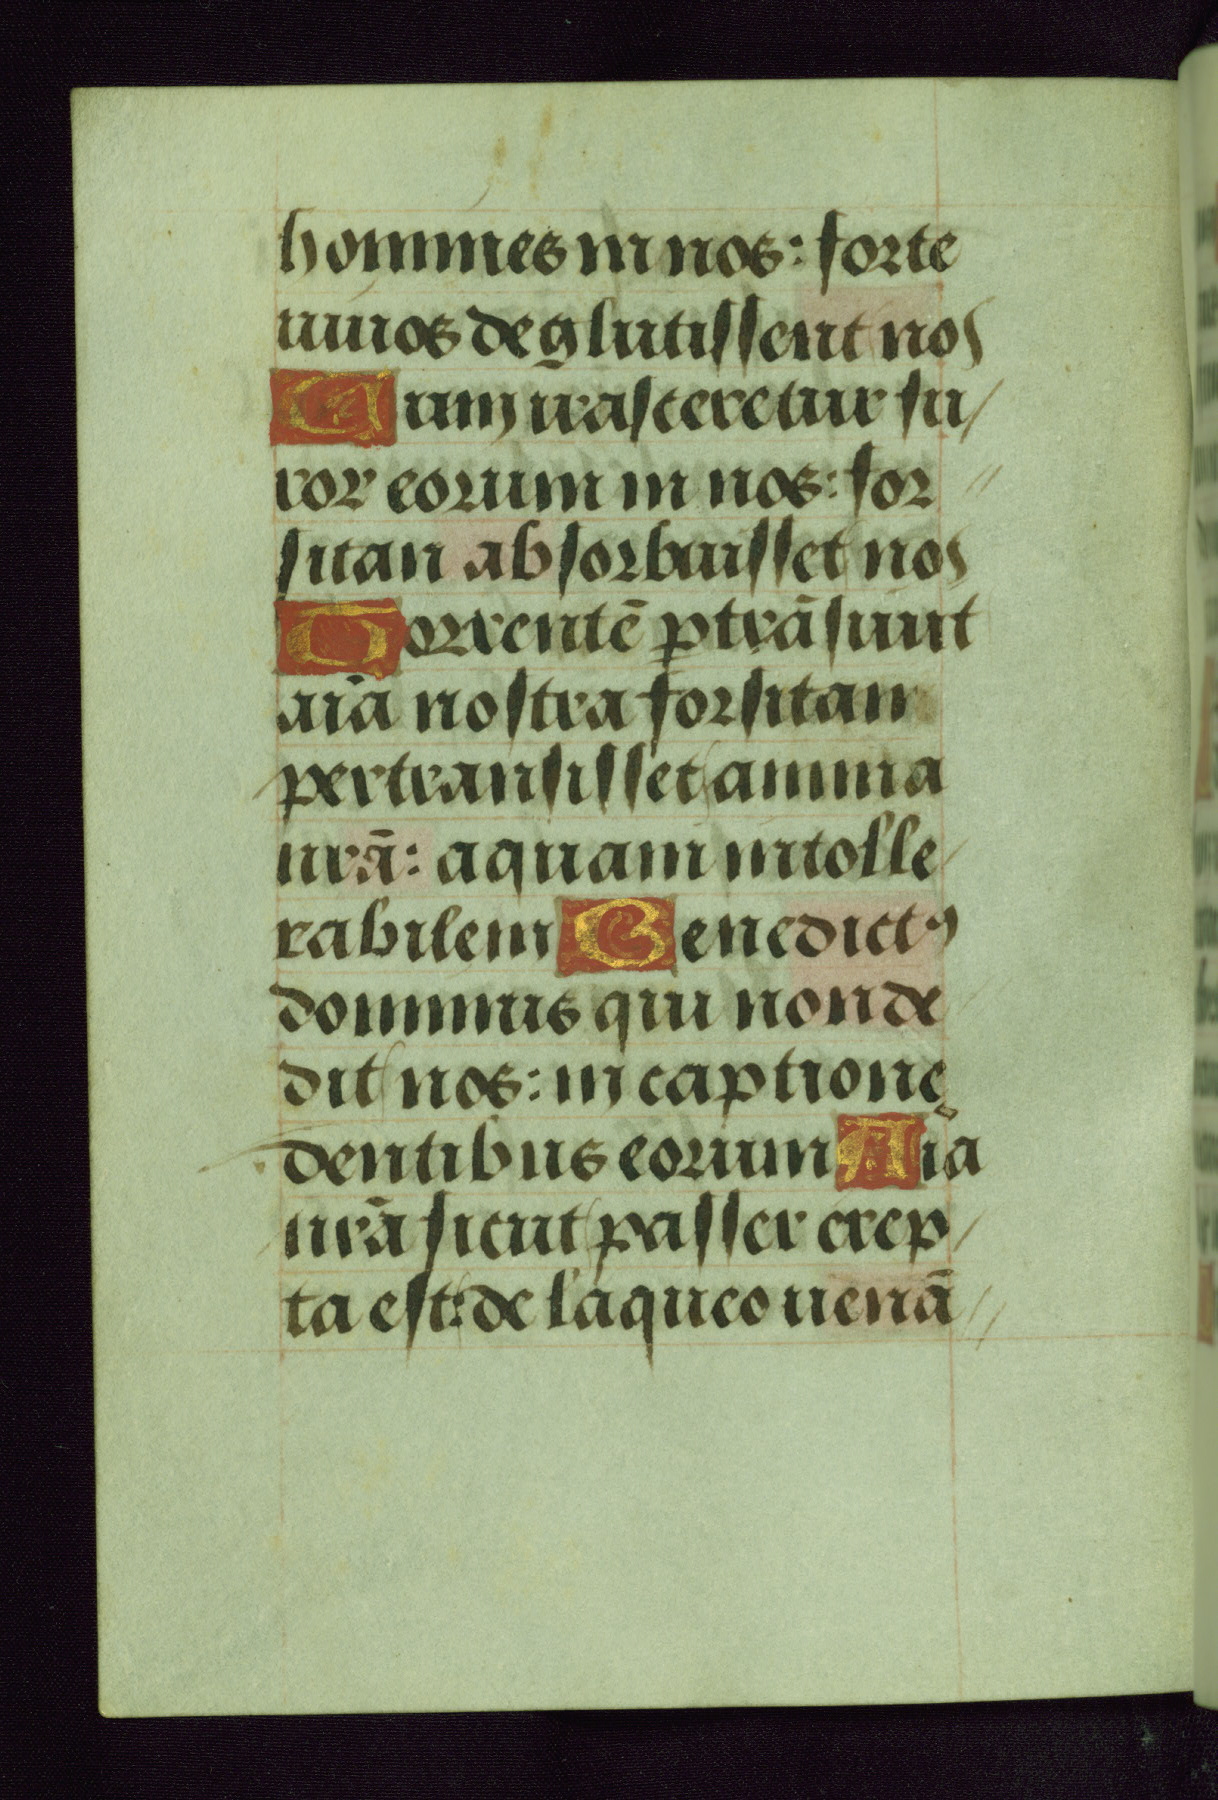 homines in nos: forte
uiuos deglutissent nos
Cum irasceretur fu/
ror eorum in nos: for//
sitan absorbuisset nos
Torrentē ꝑtrāsiuit
aīa nostra forsitan
pertransisset anima
nrā: aquam intolle/
rabilem Benedictꝰ
dominus qui non de/
dit nos: in captione
dentibus eorum Aīa
nrā sicut passer erep/
ta est: de laqueo uenā//